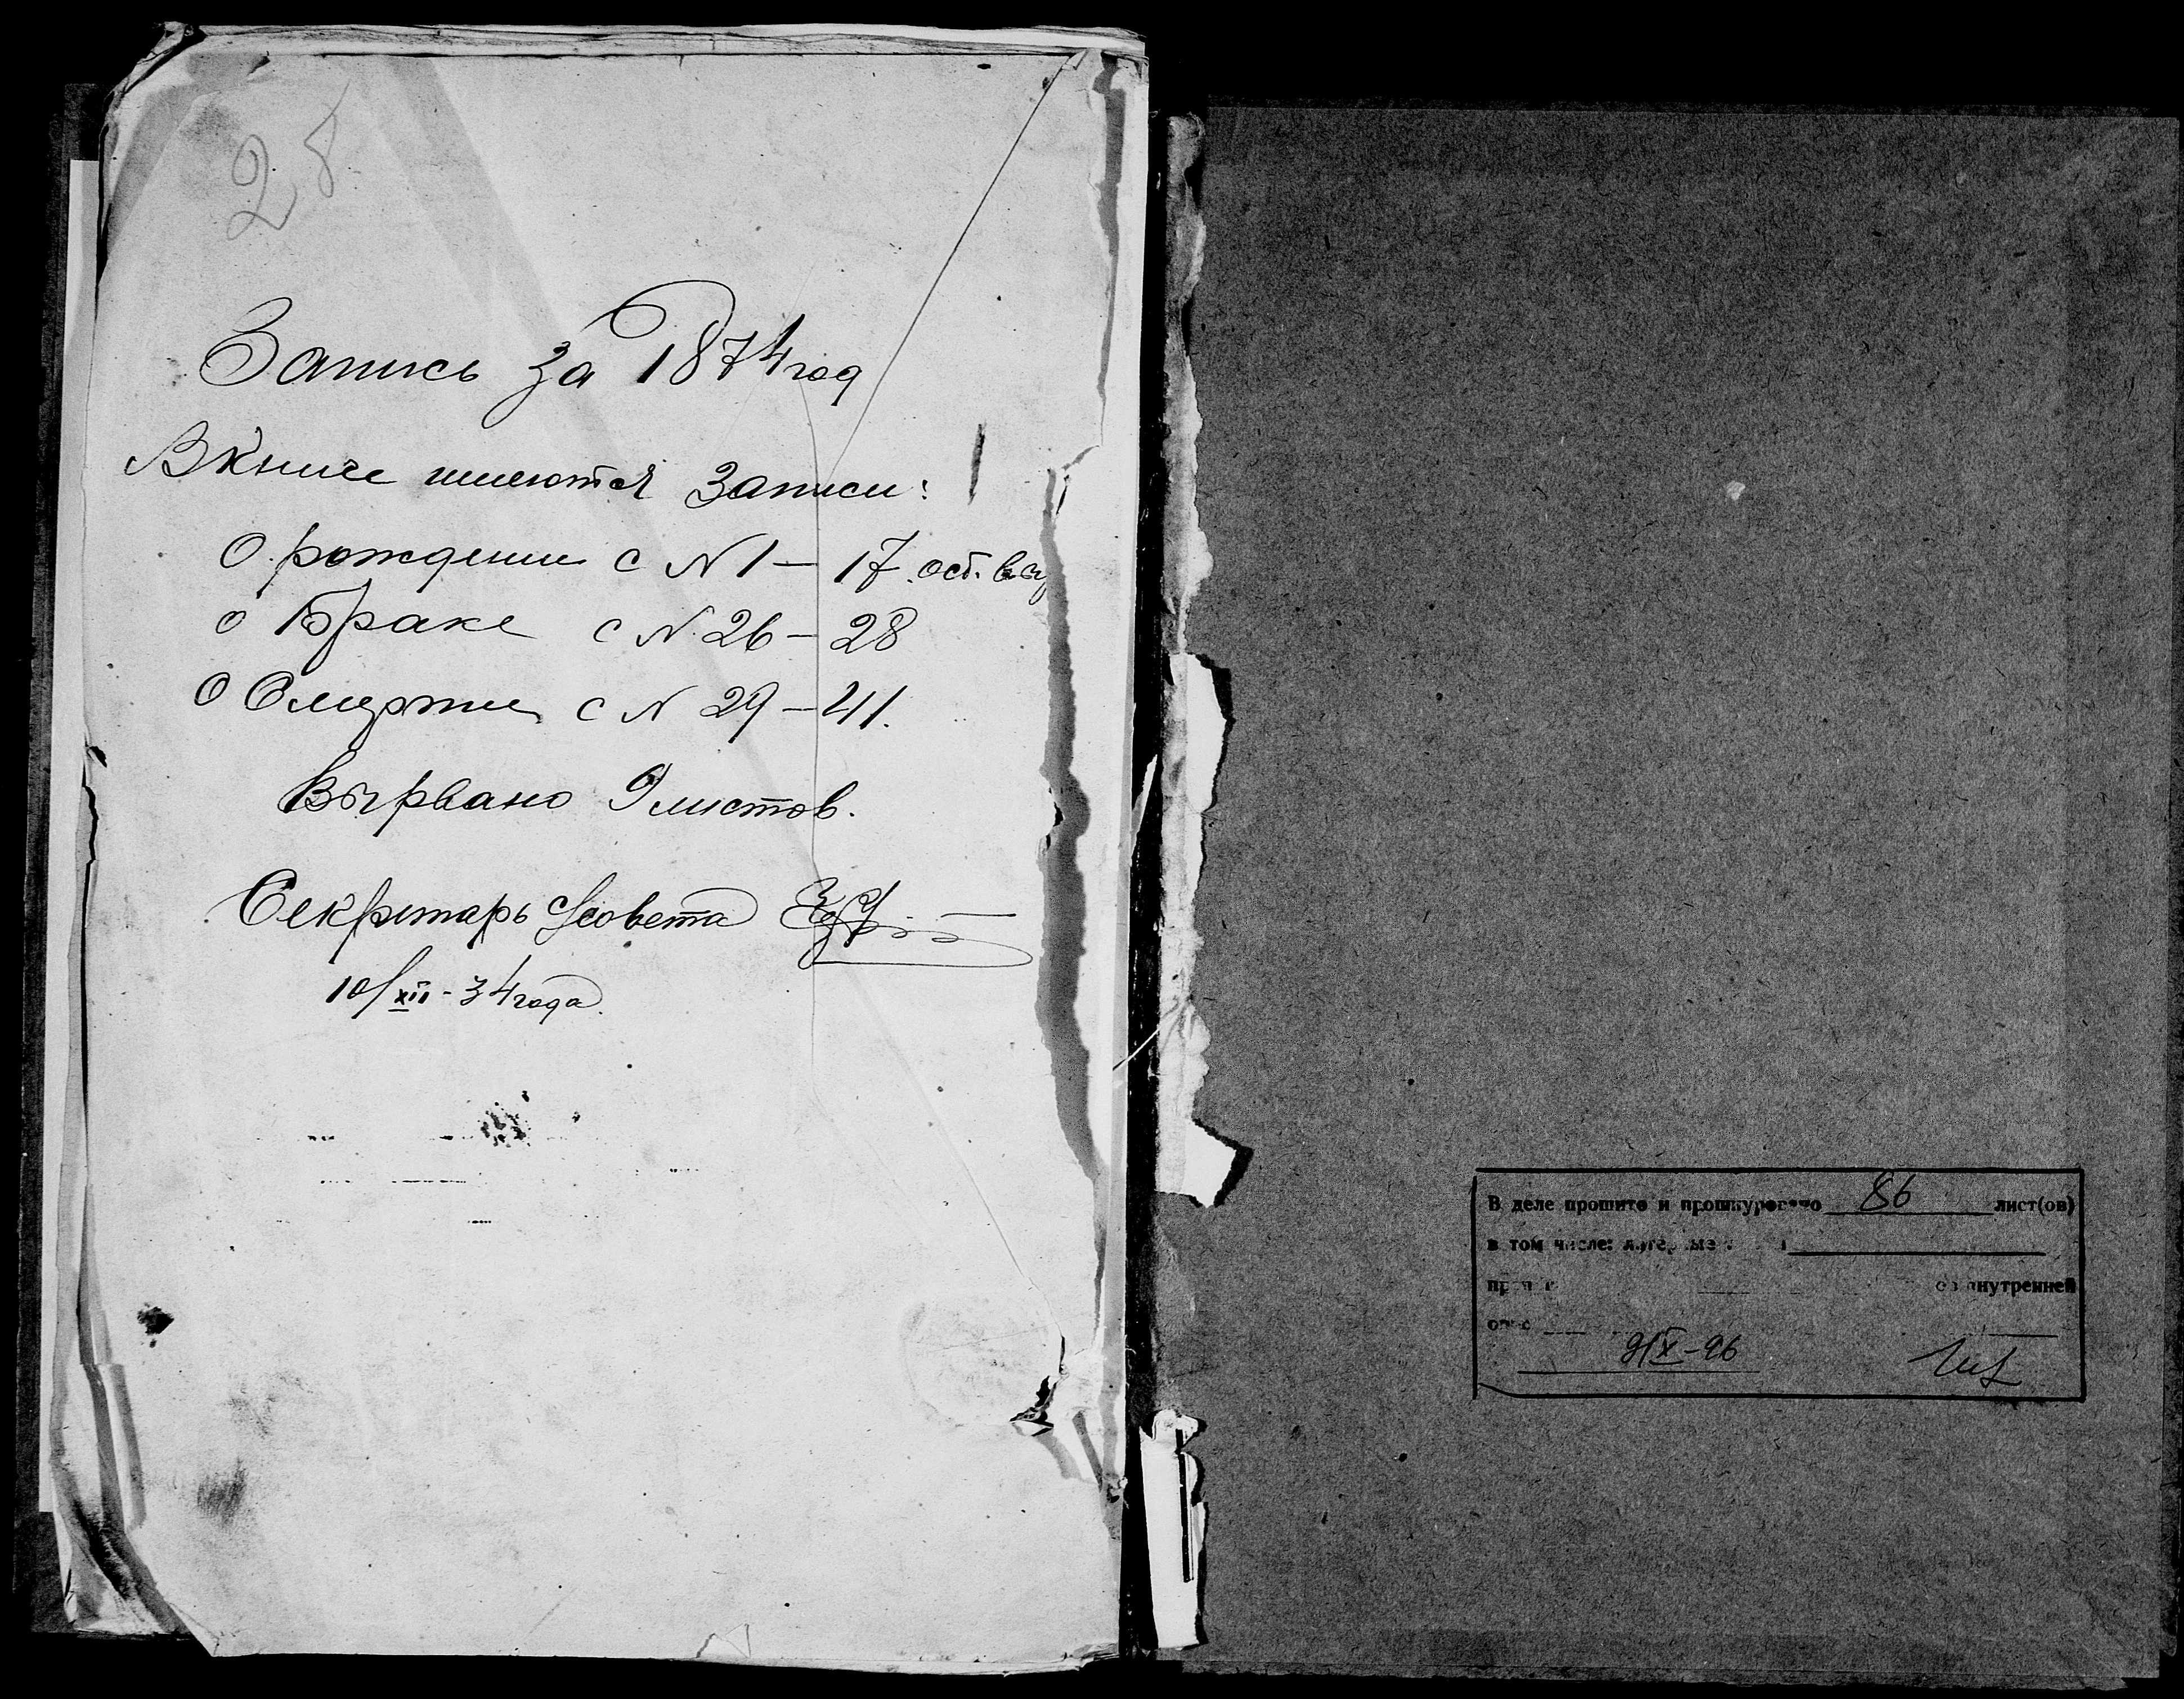 28
Запись за 1874 год
В книге имеются записи:
О рождении с N 1 – 17. ост. выр
о Браке с N. 26 – 28
О Смерти с N 29 – 41.
Вырвано 9 листов.
Секретарь с/совета
10/XII - 34 года.
В деле прошито и прошнуровано 86 лист(ов)
в том числе: литерные
внутренней
9/X - 96